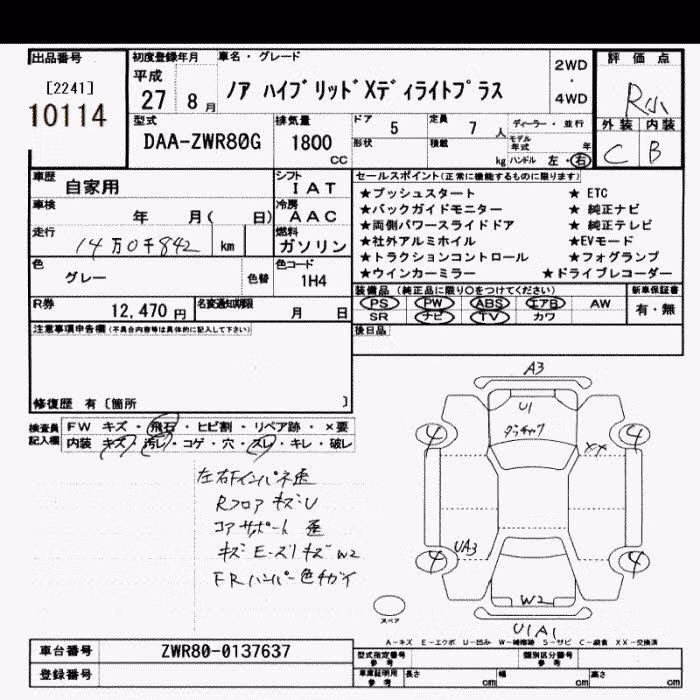 出品番号
[2241]
10114
初度登録年月
平成
27 8月
車名・グレード
ノア ハイブリッドXディライトプラス
2WD
・
4WD
評価点
R小
外装 内装
C B
型式
DAA-ZWR80G
排気量
1800
CC
ドア 5
定員 7 人
形状
積載 kg
ディーラー・並行
モデル年式 年
ハンドル 左・右
車歴 自家用
シフト IAT
車検 年 月( 日)
冷房 AAC
走行 14万0千842 km
燃料 ガソリン
色 グレー
色替
色コード 1H4
R券 12,470円
名変通知期限 月 日
セールスポイント(正常に機能するものに限ります)
★プッシュスタート ★ ETC
★バックガイドモニター ★ 純正ナビ
★両側パワースライドドア ★ 純正テレビ
★社外アルミホイル ★EVモード
★トラクションコントロール ★フォグランプ
★ウインカーミラー ★ドライブレコーダー
装備品(純正品に限り○をつけてください)
PS PW ABS エアB AW
SR ナビ TV カワ
新車保証書
有・無
後日品
注意事項申告欄(不具合内容等は具体的に記入して下さい)
修復歴 有〔箇所 〕
検査員記入欄
FW キズ・飛石・ヒビ割・リペア跡・×要
内装 キズ・汚レ・コゲ・穴・スレ・キレ・破レ
左右下インパネ歪
Rフロア キズU
コアサポート 歪
キズ E-ズ1 キズ W2
FRバンパー色チガイ
A3
U1
4 4
××
UA3
4 4
W2
U1A1
スペア
A-キズ E-エクボ U-凹み W-補修跡 S-サビ C-腐食 XX-交換済
車台番号 ZWR80-0137637
登録番号
型式指定番号 参考
類別区分番号 参考
車庫証明用 参考
長さ cm 幅 cm 高さ cm